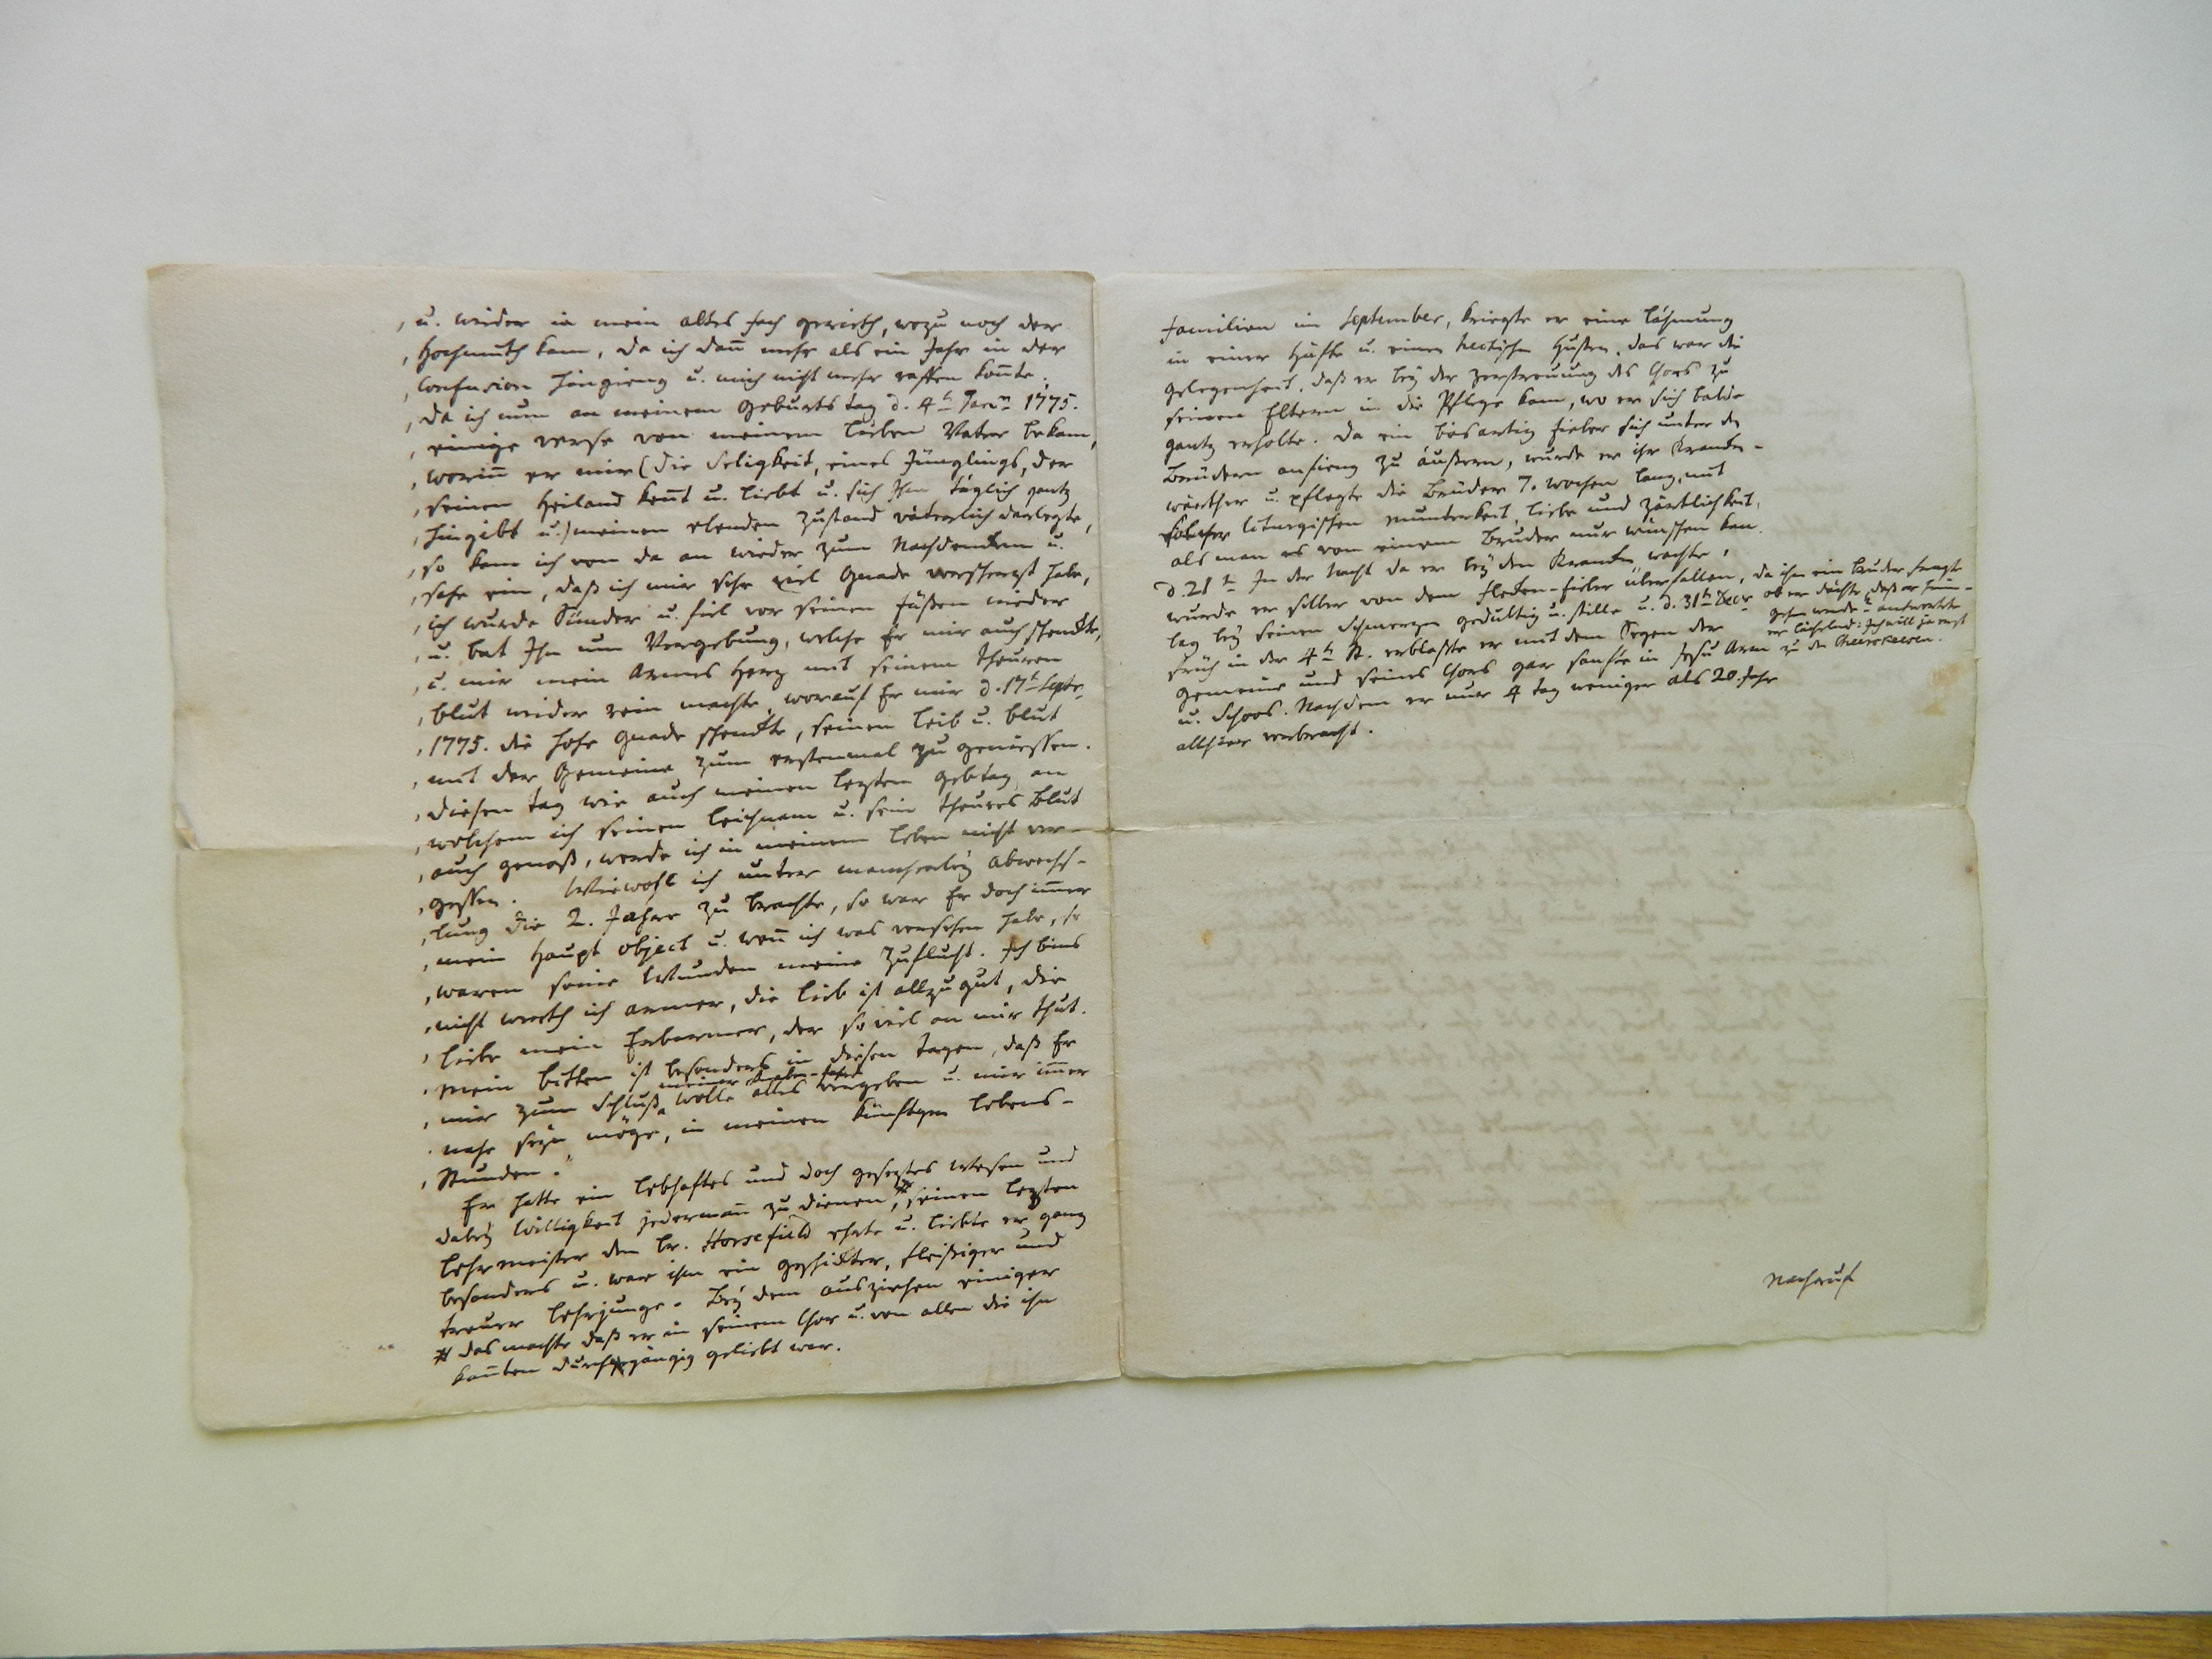 „u. wieder in mein altes fach gerieth, wozu noch der
„Hochmuth kam, da ich dañ mehr als ein Jahr in der
„Confusion hingieng u. mich nicht mehr raffen konte.
„da ich nun an meinem Geburts tag d. 4t Janr 1775.
„einige verse von meinem lieben Vater bekam,
„woriñ er mir (die Seligkeit, eines Jünglings, der
„seinen Heiland keñt u. liebt u. sich Ihm täglich gantz
„hingibt u.) meinen elenden zustand väterlich darlegte,
„so kam ich von da an wieder zum Nachdencken u.
„sahe ein, daß ich mir sehr viel Gnade verscherzt habe,
„ich wurde Sünder u. fiel vor seinen füßen nieder
„u. bat Ihn um Vergebung, welche Er mir auch schenckte,
„u. mir mein Armes Herz mit seinem theuren
„blut wieder rein machte, worauf Er mir d. 17t Sept.
„1775. die hohe Gnade schenckte, seinen leib u. blut
„mit der Gemeine zum erstenmal zu geniessen.
„diesen tag wie auch meinen lezten Gebtag an
„welchem ich seinen leichnam u. sein theures Blut
„auch genoß, werde ich in meinem leben nicht ver-
„gessen. Wiewohl ich unter mancherley abwechs-
„lung die 2. Jahre zu brachte, so war Er doch im̄er
„mein Haupt object u. weñ ich was versehen habe, so
„waren seine Wunden meine Zuflucht. Ich bins
„nicht werth ich armer, die lieb ist allzugut, die
„liebe mein Erbarmer, der so viel an mir thut.
„Mein bitten ist besonders in diesen tagen, daß Er
meiner Knaben-Jahre
„mir zum Schluß wolle alles vergeben u. mir im̄er
„nahe seyn möge, in meinen künftgen lebens-
„Stunden.“
Er hatte ein lebhaftes und doch geseztes Wesen und
dabey Willigkeit jedermañ zu dienen, # seinen lezten
lehrmeister den br. Horsefield ehrte u. liebte er ganz
besonders u. war ihm ein geschickter, fleißiger und
treuer lehrjunge. Bey dem ausziehen einiger
# das machte daß er in seinem Chor u. von allen die ihn
kañten durchgängig geliebt war.
familien im September, kriegte er eine lähmung
in einer Hüfte u. einen hectischen Husten, das war die
gelegenheit, daß er bey der zerstreuung des Chors zu
seinen Eltern in die Pflege kam, wo er sich balde
gantz erholte. Da ein bösartig fieber sich unter den
Brüdern anfieng zu äußern, wurde er ihr Krancken-
wärther u. pflegte die Brüder 7. wochen lang, mit
solcher liturgischen munterkeit, liebe und zärtlichkeit,
als man es von einem Bruder nur wünschen kan.
d. 21t In der Nacht da er bey den Krancken wachte,
wurde er selber von dem flecken-fieber überfallen, da ihn ein bruder fragte
ob er dächte, daß er heim-
gehn werde? antwortete
er lächelnd: Ich will ja erst
zu den
lag bey seinen Schmerzen gedultig u. stille u. d. 31t Decr
früh in der 4t St. erblaßte er mit dem Segen der
Gemeine und seines Chors gar sanfte in Jesu Arm
u. Schoos. Nachdem er nur 4 tag weniger als 20. Jahr
allhier verbracht.
Nachruf